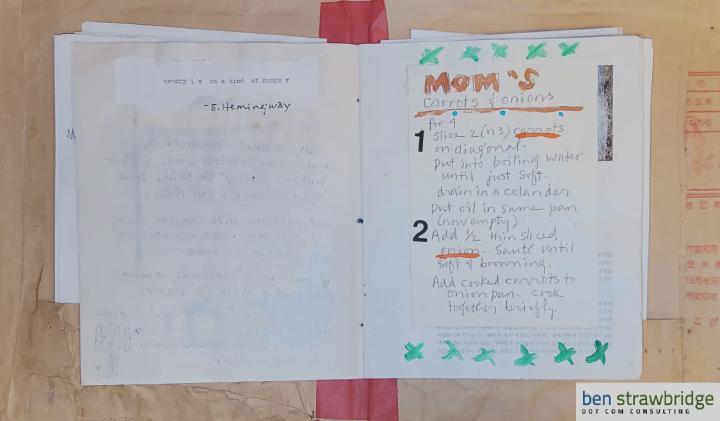 memory i s on a kind of hunge r
-E. Hemingway
MOM'S
carrots & onions
for 4
1
slice 2 (n 3) carrots
on diagonal.
put into boiling water
until just soft.
drain in a colandar
put oil in same pan
(now empty).
2
Add 1/2 thin sliced
onion. sauté until
soft & browning.
Add cooked carrots to
onion pan. cook
together briefly.
ben strawbridge
DOT COM CONSULTING